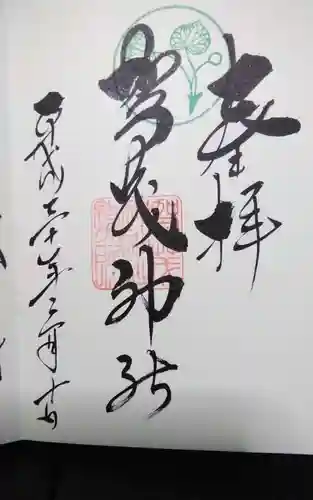 奉拝
賀茂神社
平成三十年三月十日